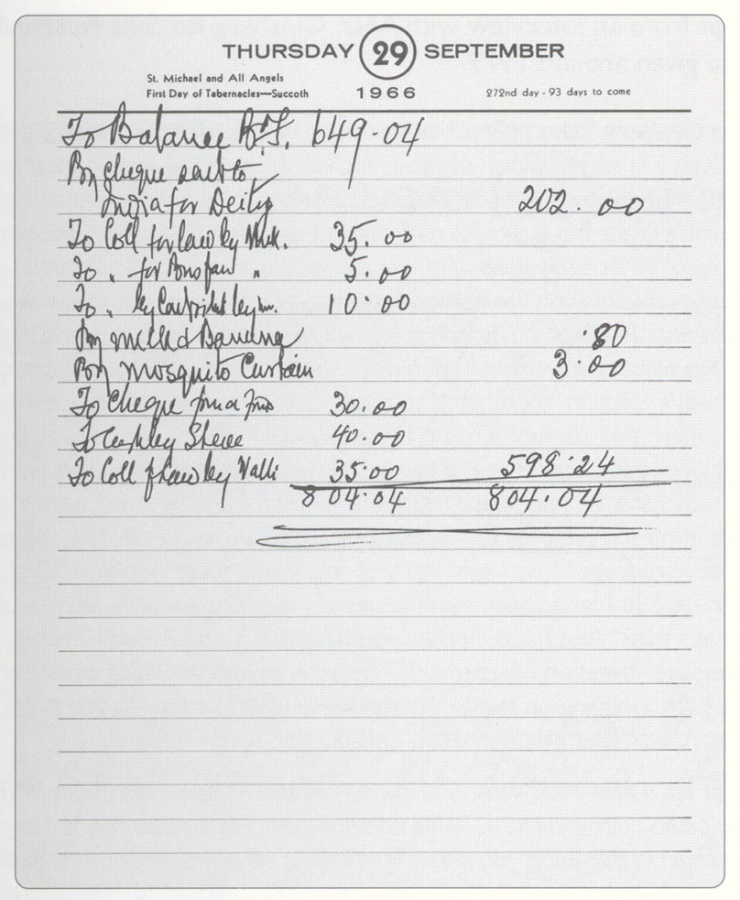 THURSDAY 29 SEPTEMBER
St. Michael and All Angels
First Day of Tabernacles—Succoth 1966 272nd day - 93 days to come
To Balance B.F. 649-04
By cheque sent to
India for Deity 202.00
To Coll for law by Muk. 35.00
To " for " 5.00
To " by 10.00
By milk & Banana .80
By Mosquito Curtain 3.00
To Cheque from a 30.00
To Cash by Steve 40.00
To Coll f law by Valli 35.00 598.24
804.04 804.04